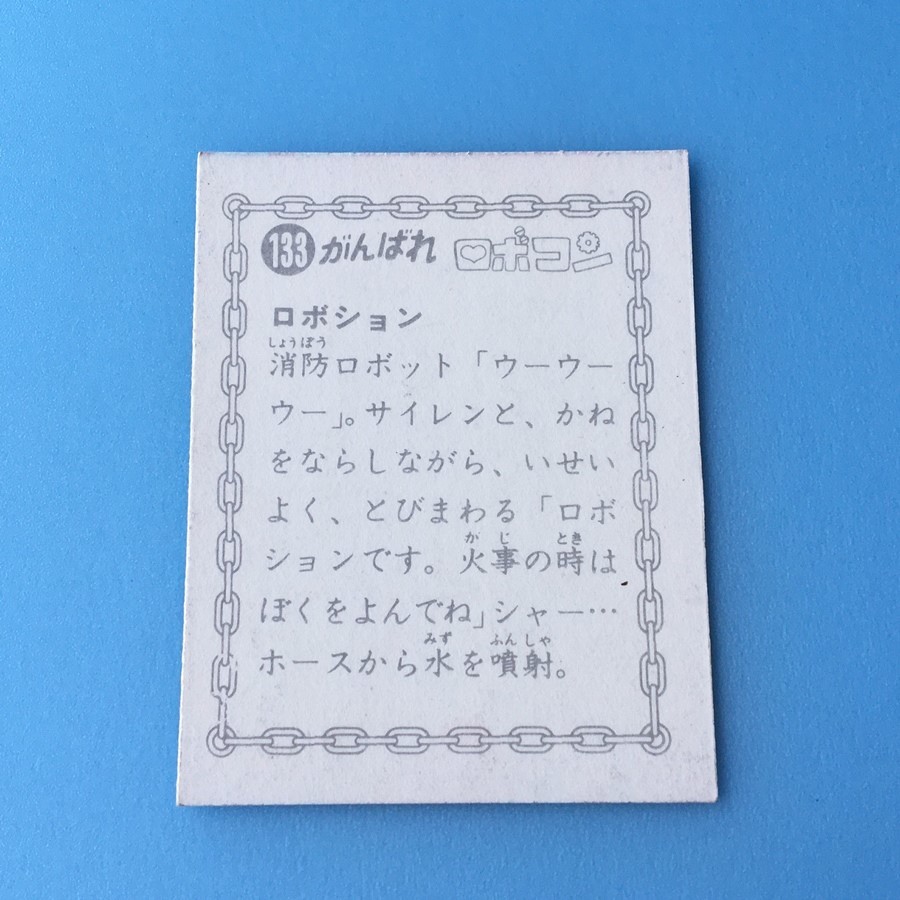 133 がんばれ ロボコン
ロボション
しょうぼう
消防ロボット「ウーウー
ウー」。サイレンと、かね
をならしながら、いせい
よく、とびまわる「ロボ
ションです。火事の時は
かじ とき
ぼくをよんでね」シャー…
みず ふんしゃ
ホースから水を噴射。